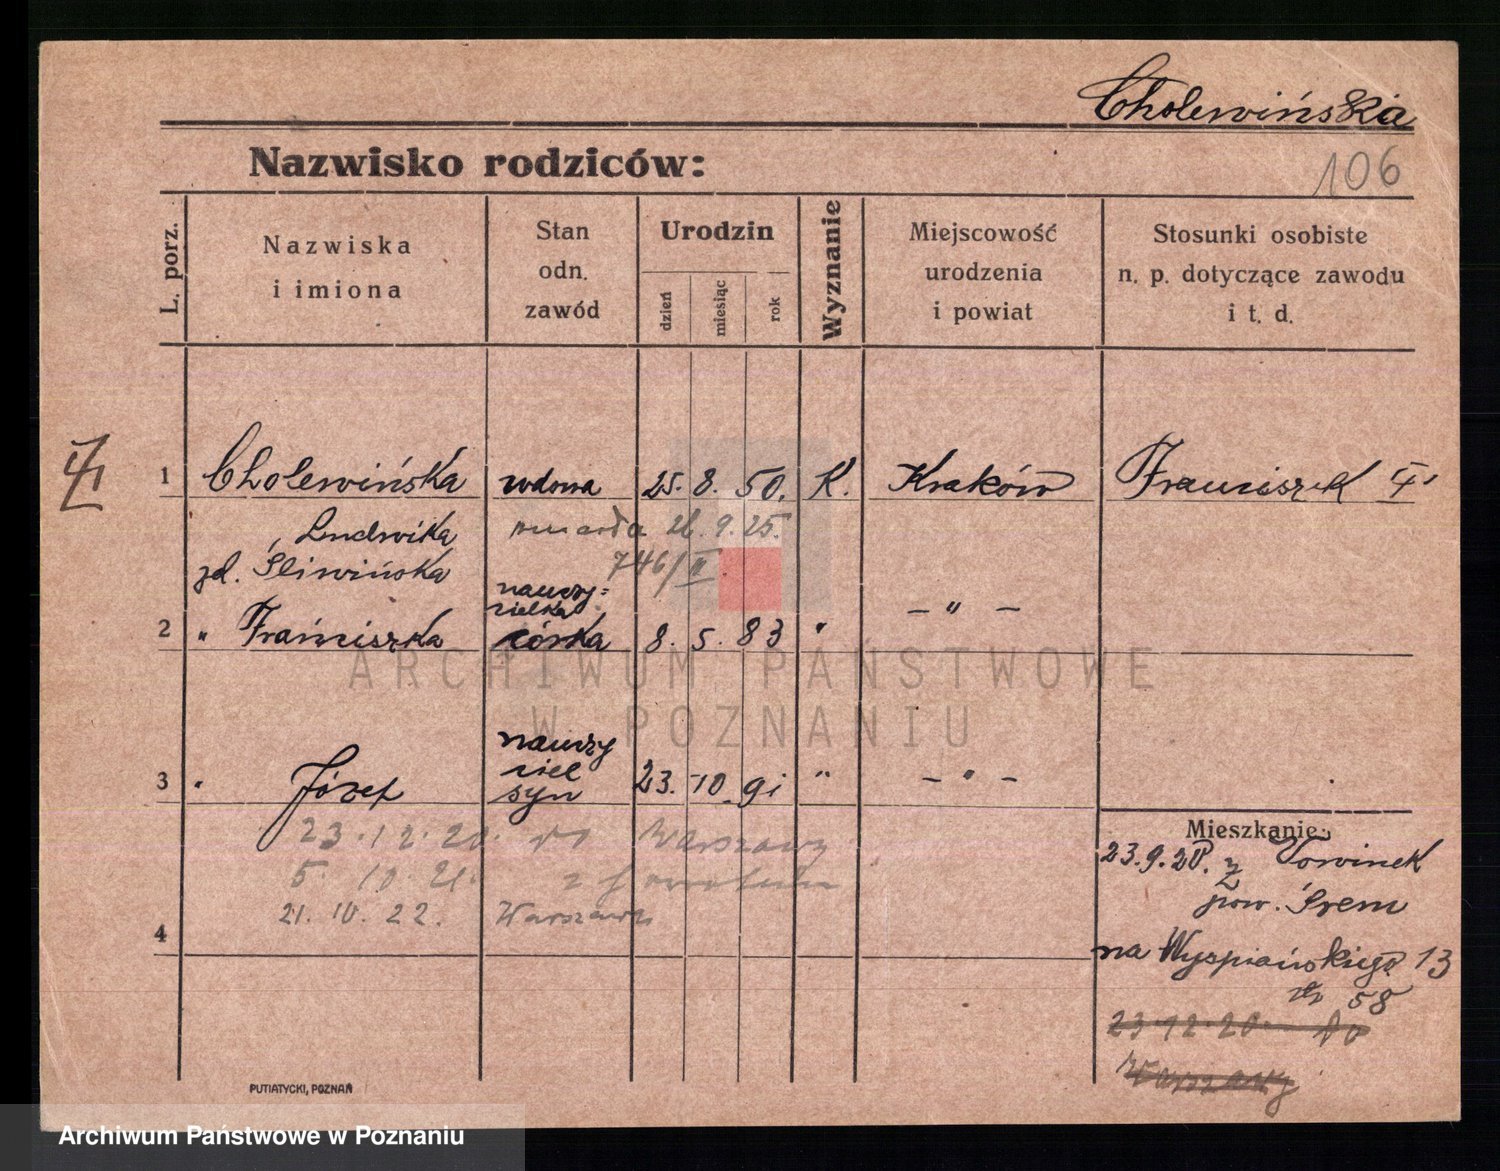 Cholewińska
Nazwisko rodziców:
106
L. porz.
Nazwiska
i imiona
Stan
odn.
zawód
Urodzin
dzień
miesiąc
rok
Wyznanie
Miejscowość
urodzenia
i powiat
Stosunki osobiste
n. p. dotyczące zawodu
i t. d.
1 Cholewińska wdowa 25. 8. 50. K. Kraków Franciszek
Ludwika umarła 26. 9. 25.
zd. Śliwińska 746/III
nauczy=
cielka
2 " Franciszka córka 8. 5. 83 " – " –
ARCHIWUM PAŃSTWOWE
W POZNANIU
nauczy
ciel
3 " Józef syn 23. 10. 91 " – " –
23.12.20. do Warszawy
5. 10. 21. z powrotem
21. 10. 22. Warszawa
4
Mieszkanie:
23.9.20. z Towinek
pow. Śrem
na Wyspiańskiego 13
58
23.12.20. do
Warszawy
PUTIATYCKI, POZNAŃ
Archiwum Państwowe w Poznaniu